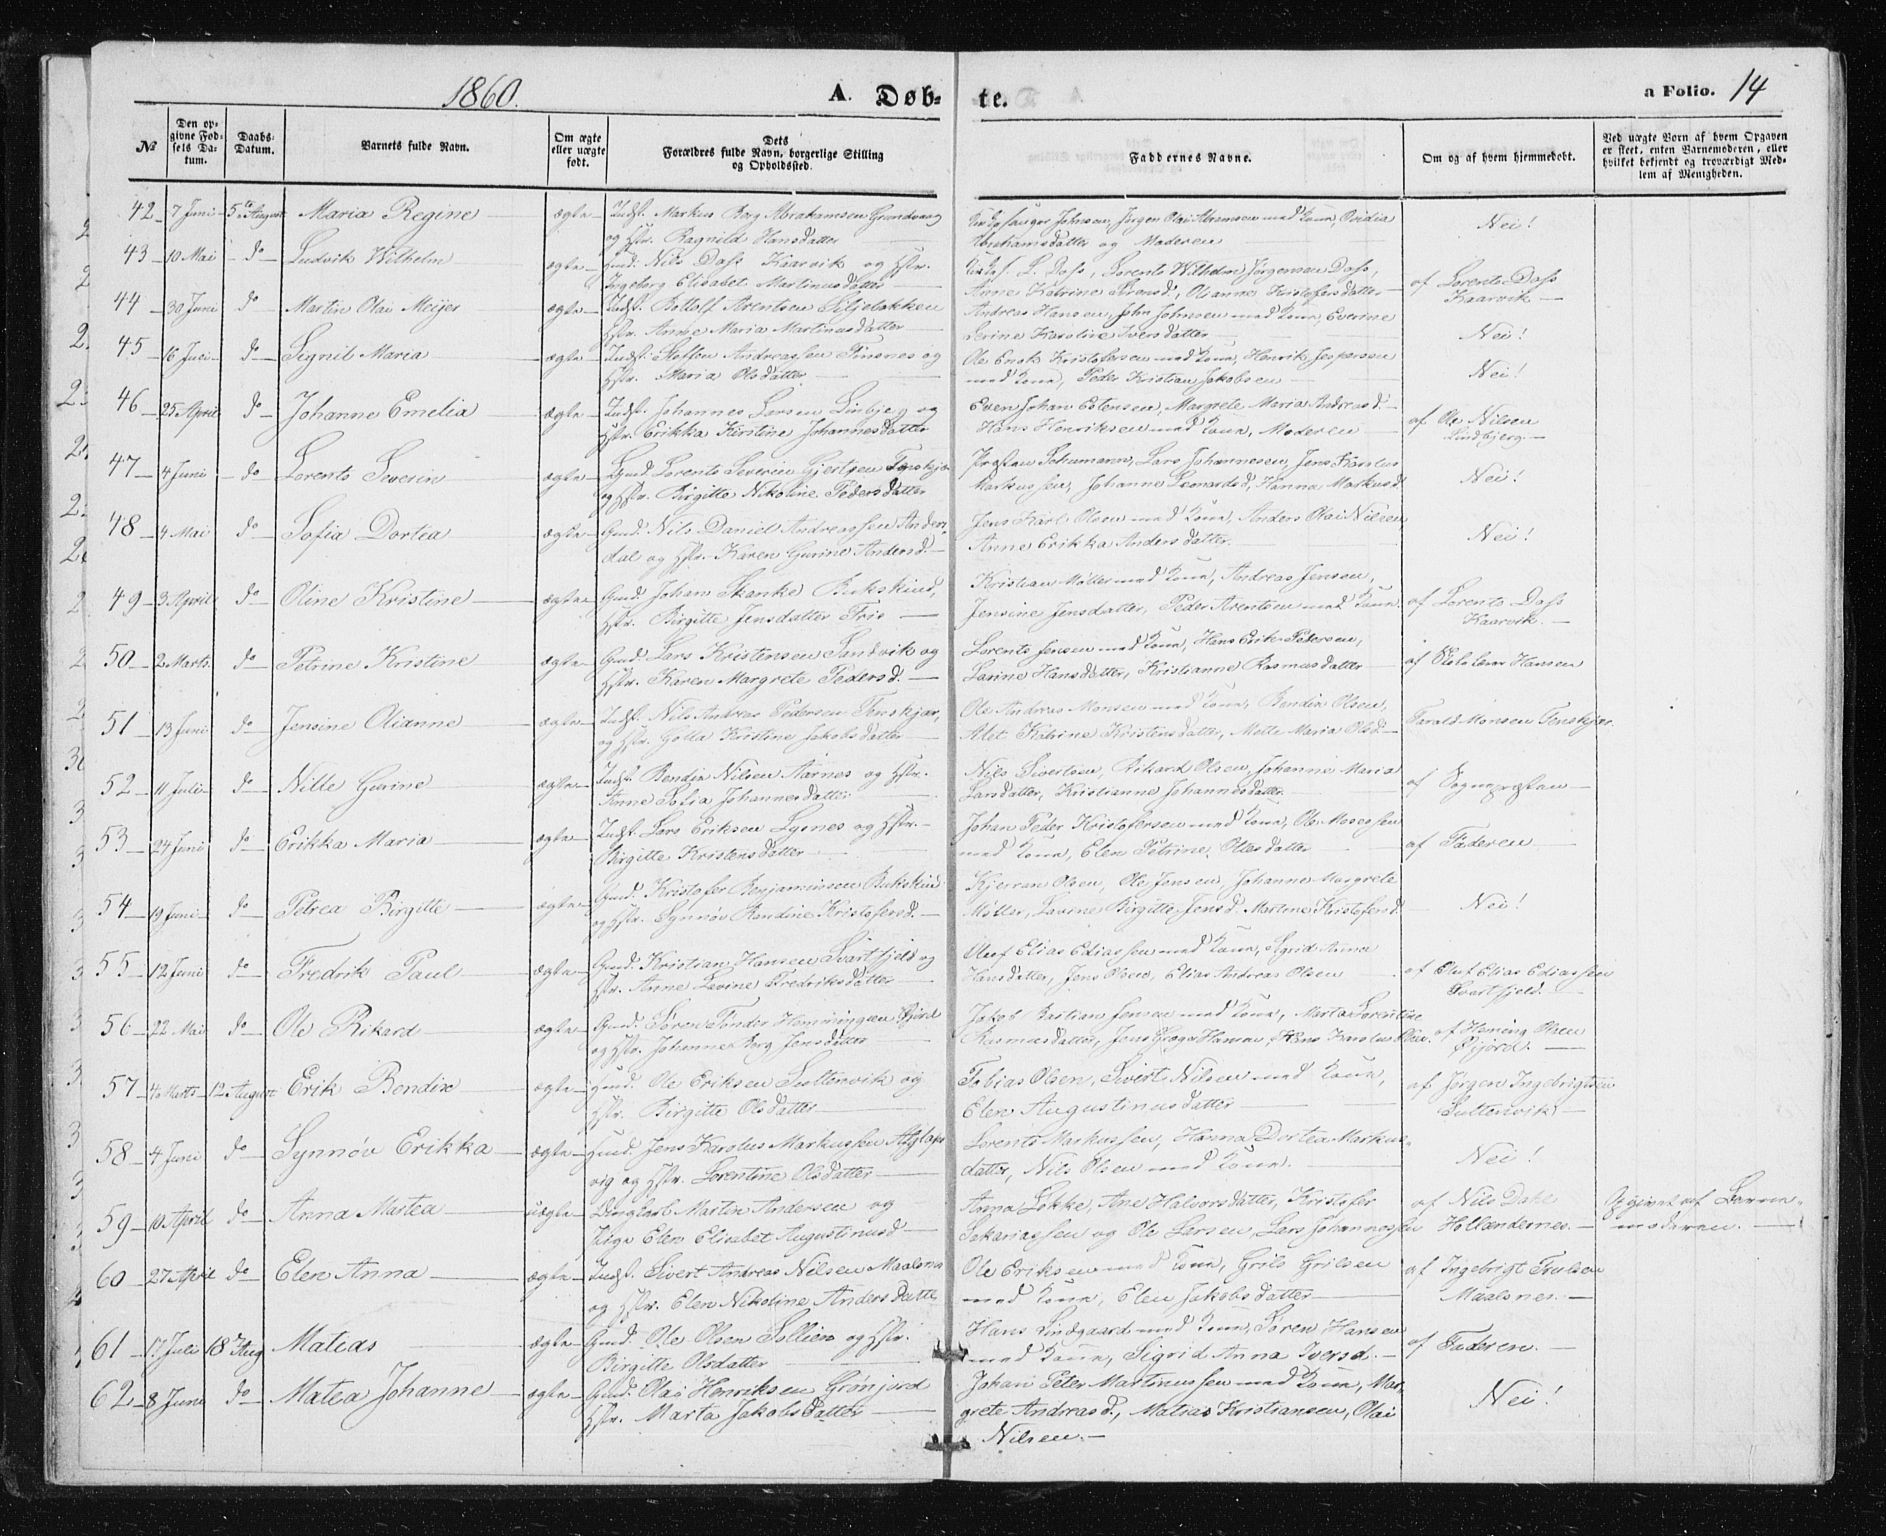 1860.
A. Døb-
te.
a Folio. 14
№
Den op-
givne Fød-
sels Da-
tum.
Daabs-
Datum.
Barnets fulde Navn.
Om ægte
eller uægte
født.
Dets
Forældres fulde Navn, borgerlige Stilling
og Opholdssted.
Faddernes Navne.
Om og af hvem hjemmedøbt.
Ved uægte Børn af hvem Opgaven
er skeet, enten Barnemoderen, eller
hvilket bekjendt og troværdigt Med-
lem af Menigheden.
42 7 Juni 5te August Maria Regine ægte Indst. Markus Berg Abrahamsen
og Hstr. Ragnild Hansdatter
Johnsen, Jørgen Olai Abramsen med Kone,
Abrahamsdatter og Moderen
Nei!
43 10 Mai do Ludvik Wilhelm ægte Nils Dass Kaarvik og Hstr.
Ingeborg Elisabet Martinusdatter
L. Dass, Lorents Wilhelm Jørgensen Dass,
Anne Katrine, Olianne Kristofersdatter
af Lorents Dass
Kaarvik
44 30 Juni do Martin Olai Meijer ægte Indst. Bottolf Arentsen
Hstr. Anne Maria Martinusdatter
Andreas Hansen, John Johnsen med Kone, Everine
Serine Karoline Iversdatter
Nei!
45 16 Juli do Signil Maria ægte Indst. Andreassen Finsnes og
Hstr. Maria Olsdatter
Ole Enok Kristofersen med Kone, Henrik Jespersen
med Kone, Peder Kristian Jakobsen
Nei!
46 25 April do Johanne Emelia ægte Indst. Johannes Larsen og
Hstr. Erikka Kirstine Johannesdatter
Even Johan Estensen, Margrete Maria Andreasd.
Hans Henriksen med Kone, Moderen
af Ole Nilsen
Lindbjerg
47 4 Juni do Lorents Severin ægte Lorents Severin Gjertsen
og Hstr. Birgitte Nikoline Pedersdatter
Præsten Schumann, Lars Johannesen, Jens Karolus
Markussen, Johanne Leonardsd, Hanna Markusd.
Nei!
48 4 Mai do Sofia Dortea ægte Gmd. Nils Daniel Andreassen Ander-
dal og Hstr. Karen Gurine Andersd.
Jens Karl Olsen med Kone, Anders Olai Nilsen
Anne Erikka Andersdatter
Nei!
49 3 April do Oline Kristine ægte Gmd. Johan Skanke Bukskind,
Hstr. Birgitte Jensdatter Friis
Kristian Møller med Kone, Andreas Jensen,
Jensine Jensdatter, Peder Arentsen med Kone
af Lorents Dass
Kaarvik.
50 2 Marts do Petrine Kristine ægte Gmd. Lars Kristensen Sandvik og
Hstr. Karen Margrete Pedersd.
Lorents Jensen med Kone, Hans Erik Pedersen,
Lavine Hansdatter, Kristianne Rasmusdatter
af Hansen
51 13 Juni do Jensine Olianne ægte Indst. Nils Andreas Pedersen Fenskjær,
og Hstr. Golla Kristine Jakobsdatter
Ole Andreas Monsen med Kone, Bendix Olsen,
Alet Katrine Kristensdatter, Mette Maria Olsd
Tarald Monsen Fenskjær.
52 11 Juli do Nille Gurine ægte Indst. Bendix Nilsen Aarnes og Hstr.
Anne Sofia Johannesdatter
Nils Sivertsen, Rikard Olsen, Johanne Maria
Larsdatter, Kristianne Johannesdatter
af Sognepræsten
53 24 Juni do Erikka Maria ægte Indst. Lars Eriksen Lysnes og Hstr.
Birgitte Kristensdatter
Johan Peder Kristofersen med Kone, Ole Mosessen
med Kone, Elen Petrine Ollesdatter
af Faderen
54 19 Juni do Petrea Birgitte ægte Gmd. Kristofer Benjaminsen Bukskind
og Hstr. Synnøv Bendine Kristofersd.
Kjerran Olsen, Ole Jensen, Johanne Margrete
Møller, Lavine Birgitte Jensd. Martine Kristofersd.
Nei!
55 12 Juni do Fredrik Paul ægte Gmd. Kristian Hansen Svartfjeld og
Hstr. Anne Lavine Fredriksdatter
Oluf Elias Ediassen med Kone, Sigrid Anna
Hansdatter, Jens Olsen, Elias Andreas Olsen
af Oluf Elias Ediassen
Svartfjeld.
56 22 Mai do Ole Rikard ægte Gmd. Søren Tønder Hemmingsen Øijord
og Hstr. Johanna Berg Jensdatter
Jakob Bastian Jensen med Kone, Marta Lorentine
Rasmusdatter, Jens Hansen, Karolus Olsen.
af Heming Olsen
Øijord.
57 4 Marts 12 August Erik Bendix ægte Gmd. Ole Eriksen Sultenvik og
Hstr. Birgitte Olsdatter
Tobias Olsen, Sivert Nilsen med Kone,
Elen Augustinusdatter
af Jørgen Ingebrigtsen
Sultenvik
58 4 Juni do Synnøv Erikka ægte Gmd. Jens Karolus Markussen
vig og Hstr. Lorentine Olsdatter
Lorents Markussen, Hanna Dortea Markus-
datter, Nils Olsen med Kone.
Nei!
59 10 April do Anna Martea uægte Ungkarl Martin Andersen og
Pige Elen Elisabet Augustinusd
Anna Løkke, Ane Halvorsdatter, Kristofer
Sakariassen og Ole Larsen, Lars Johannessen
af Nils Dahl
Hollendernes.
Opgivet af Barne-
moderen.
60 27 April do Elen Anna ægte Indst. Sivert Andreas Nilsen Maalsnes
og Hstr. Elen Nikoline Andersdatter
Ole Eriksen med Kone, Grils Grilsen
med Kone, Elen Jakobsdatter
af Ingebrigt Truelsen
Maalsnes.
61 17 Juli 18de Aug Matias ægte Gmd. Ole Olsen Sollien og Hstr.
Birgitte Olsdatter
Hans Lindgaard med Kone, Søren Hansen
med Kone, Sigrid Anna Iversd.
af Faderen.
62 8 Juni do Matea Johanne ægte Gmd. Olai Henriksen Grønjord
Hstr. Marta Jakobsdatter
Johan Peter Martinussen med Kone, Mar-
grete Andreasd., Matias Kristiansen, Olai
Nilsen.
Nei!